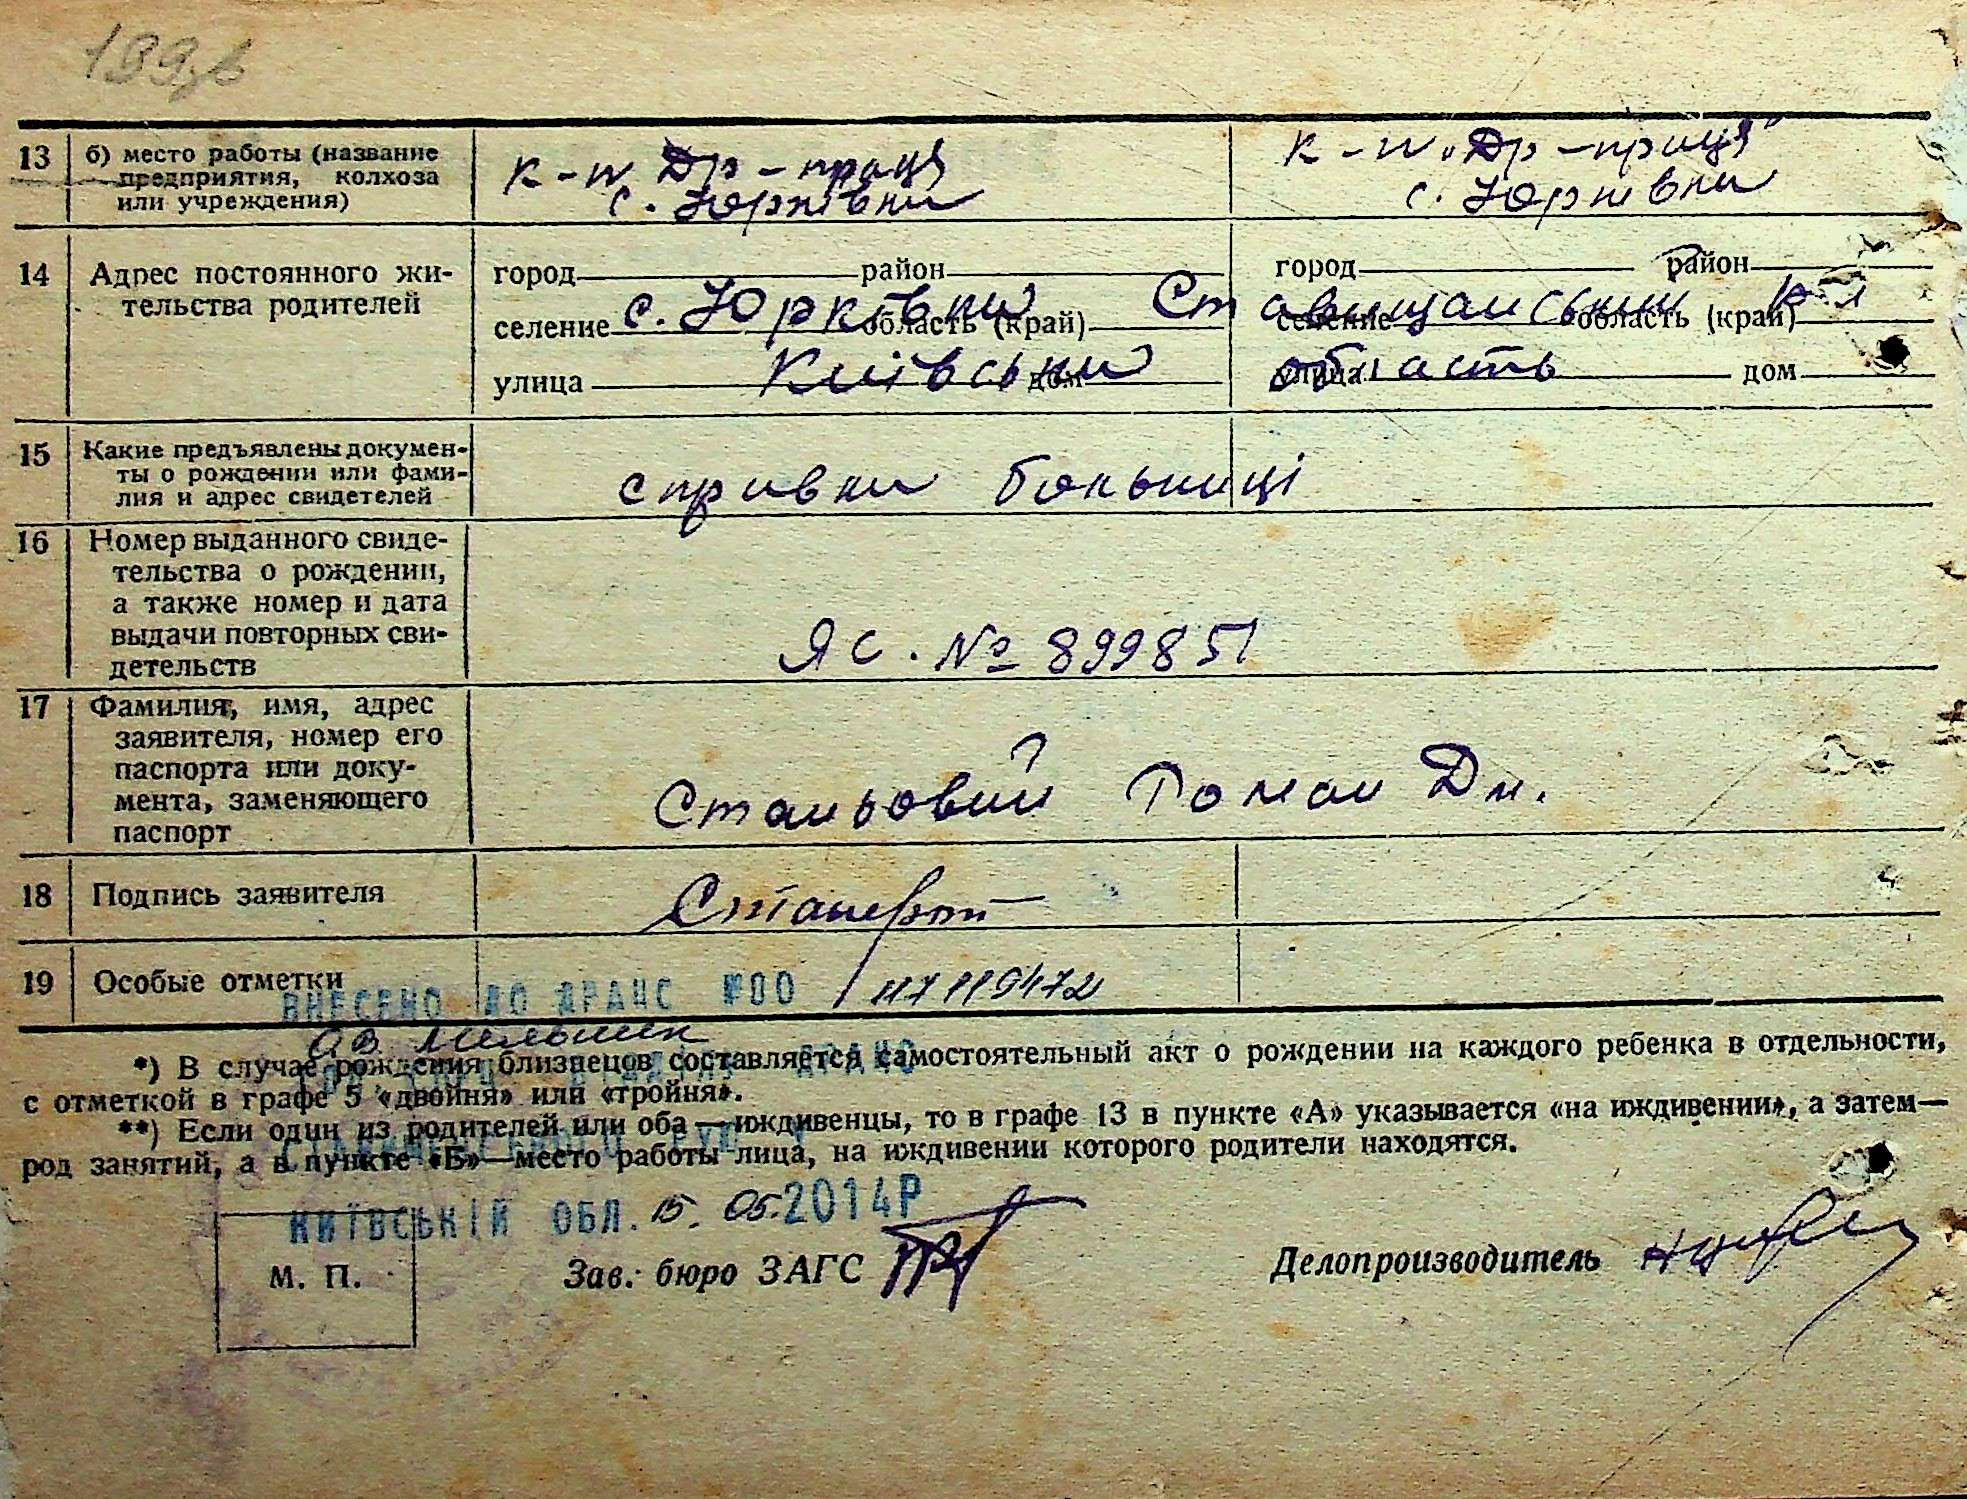 199зв
13 б) место работы (название предприятия, колхоза или учреждения)
к-п Др-праця с. Юрківка
к-п „Др-праця" с. Юрківка
14 Адрес постоянного жительства родителей
город район город район
селение с. Юрківка область (край) Ставищанський р-н селение область (край)
улица Київська дом область улица дом
15 Какие предъявлены документы о рождении или фамилия и адрес свидетелей
справка больниці
16 Номер выданного свидетельства о рождении, а также номер и дата выдачи повторных свидетельств
ЯС. № 899851
17 Фамилия, имя, адрес заявителя, номер его паспорта или документа, заменяющего паспорт
Роман Дм.
18 Подпись заявителя
19 Особые отметки
ВНЕСЕНО ДО ДРАЦС №00 117119472
*) В случае рождения близнецов составляется самостоятельный акт о рождении на каждого ребенка в отдельности,
с отметкой в графе 5 «двойня» или «тройня».
**) Если один из родителей или оба — иждивенцы, то в графе 13 в пункте «А» указывается «на иждивении», а затем—
род занятий, а в пункте «Б»—место работы лица, на иждивении которого родители находятся.
КИЇВСЬКІЙ ОБЛ. 15. 05. 2014Р
М. П. Зав. бюро ЗАГС Делопроизводитель